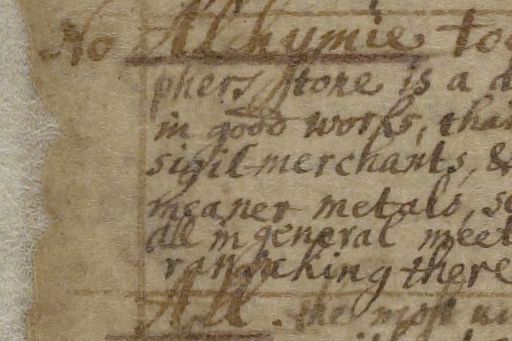 No Alchymie to
phers stone is a
in good works, tha
sigil-merchants, &
meaner metals, s
all in general meet
ransaking there
All. the most